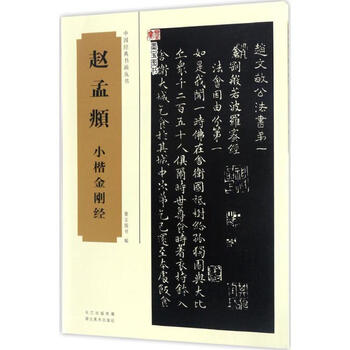 中国经典书画丛书
赵孟頫
小楷金刚经
墨宝阁书 编
长江出版传媒
湖北美术出版社
趙文敏公法書第一
金剛般若波羅蜜經
法會因由分第一
如是我聞一時佛在舍衛國祇樹給孤獨園與大比
丘衆千二百五十人俱爾時世尊食時着衣持鉢入
舍衛大城乞食於其城中次第乞已還至本處飯食